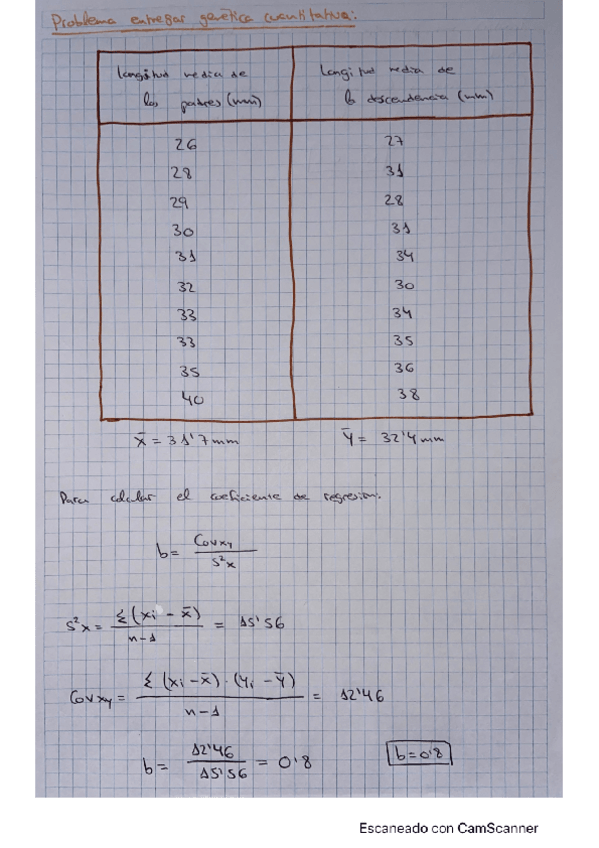 Problema entregar genética cuantitativa:
Longitud media de los padres (mm) | Longitud media de la descendencia (mm)
26 | 27
28 | 31
29 | 28
30 | 31
31 | 34
32 | 30
33 | 34
33 | 35
35 | 36
40 | 38
x̄ = 31'7 mm ȳ = 32'4 mm
Para calcular el coeficiente de regresión:
b = Cov xy / S²x
S²x = Σ (xi - x̄) / n-1 = 15'56
Cov xy = Σ (xi - x̄) · (yi - ȳ) / n-1 = 12'46
b = 12'46 / 15'56 = 0'8 b = 0'8
Escaneado con CamScanner